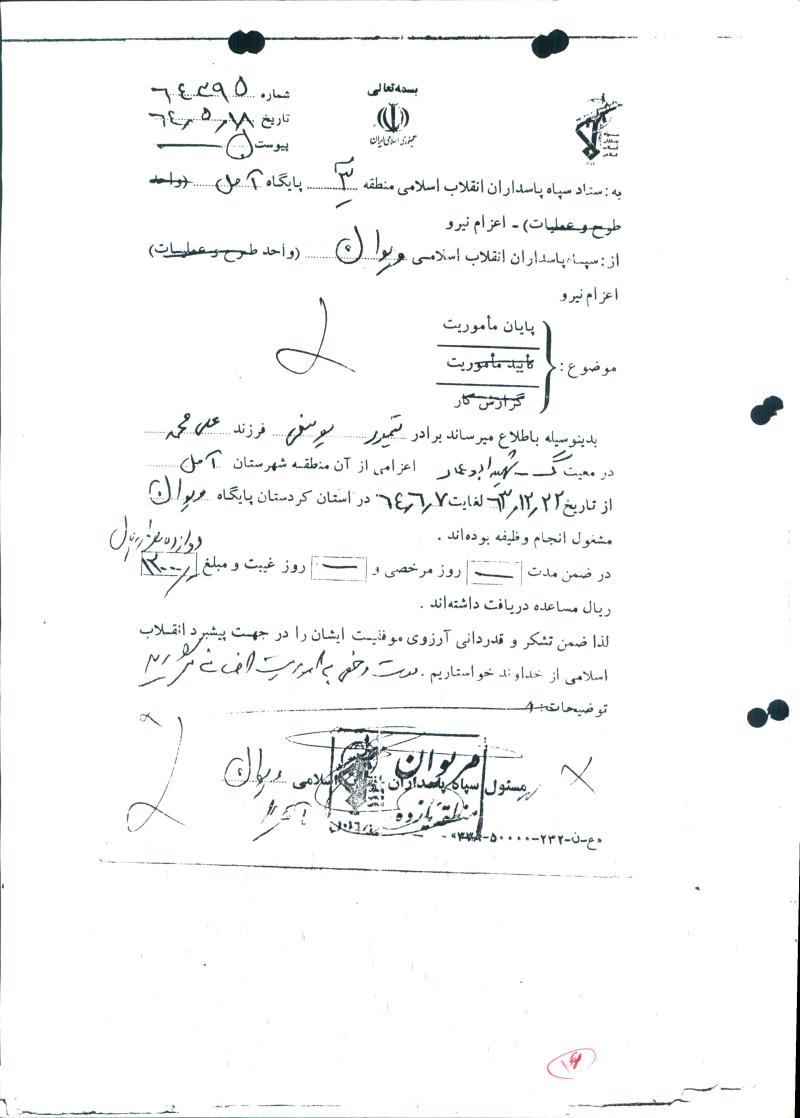 بسمه تعالی
جمهوری اسلامی ایران
شماره ۶۴۳۹۵
تاریخ ۶۴٫۵٫۱۸
پیوست
به : ستاد سپاه پاسداران انقلاب اسلامی منطقه ۳ پایگاه آمل (واحد
طرح و عملیات) - اعزام نیرو
از : سپاه پاسداران انقلاب اسلامی مریوان (واحد طرح و عملیات)
اعزام نیرو
موضوع :
پایان مأموریت
تأیید مأموریت
گزارش کار
بدینوسیله باطلاع میرساند برادر تیمور یوسفی فرزند علی محمد
در معیت شهید اعزامی از آن منطقه شهرستان آمل
از تاریخ ۶۳٫۱۲٫۲۲ لغایت ۶۴٫۶٫۷ در استان کردستان پایگاه مریوان
مشغول انجام وظیفه بوده‌اند .
دوازده هزار ریال
در ضمن مدت — روز مرخصی و — روز غیبت و مبلغ ۱۲۰۰۰
ریال مساعده دریافت داشته‌اند .
لذا ضمن تشکر و قدردانی آرزوی موفقیت ایشان را در جهت پیشبرد انقلاب
اسلامی از خداوند خواستاریم . مدت مرخصی به ماموریت اضافه
توضیحات :
مسئول سپاه پاسداران انقلاب اسلامی مریوان
مریوان
منطقه یازده
«ع-ن-۲۳۲-۵۰۰۰۰-۳۳۸»